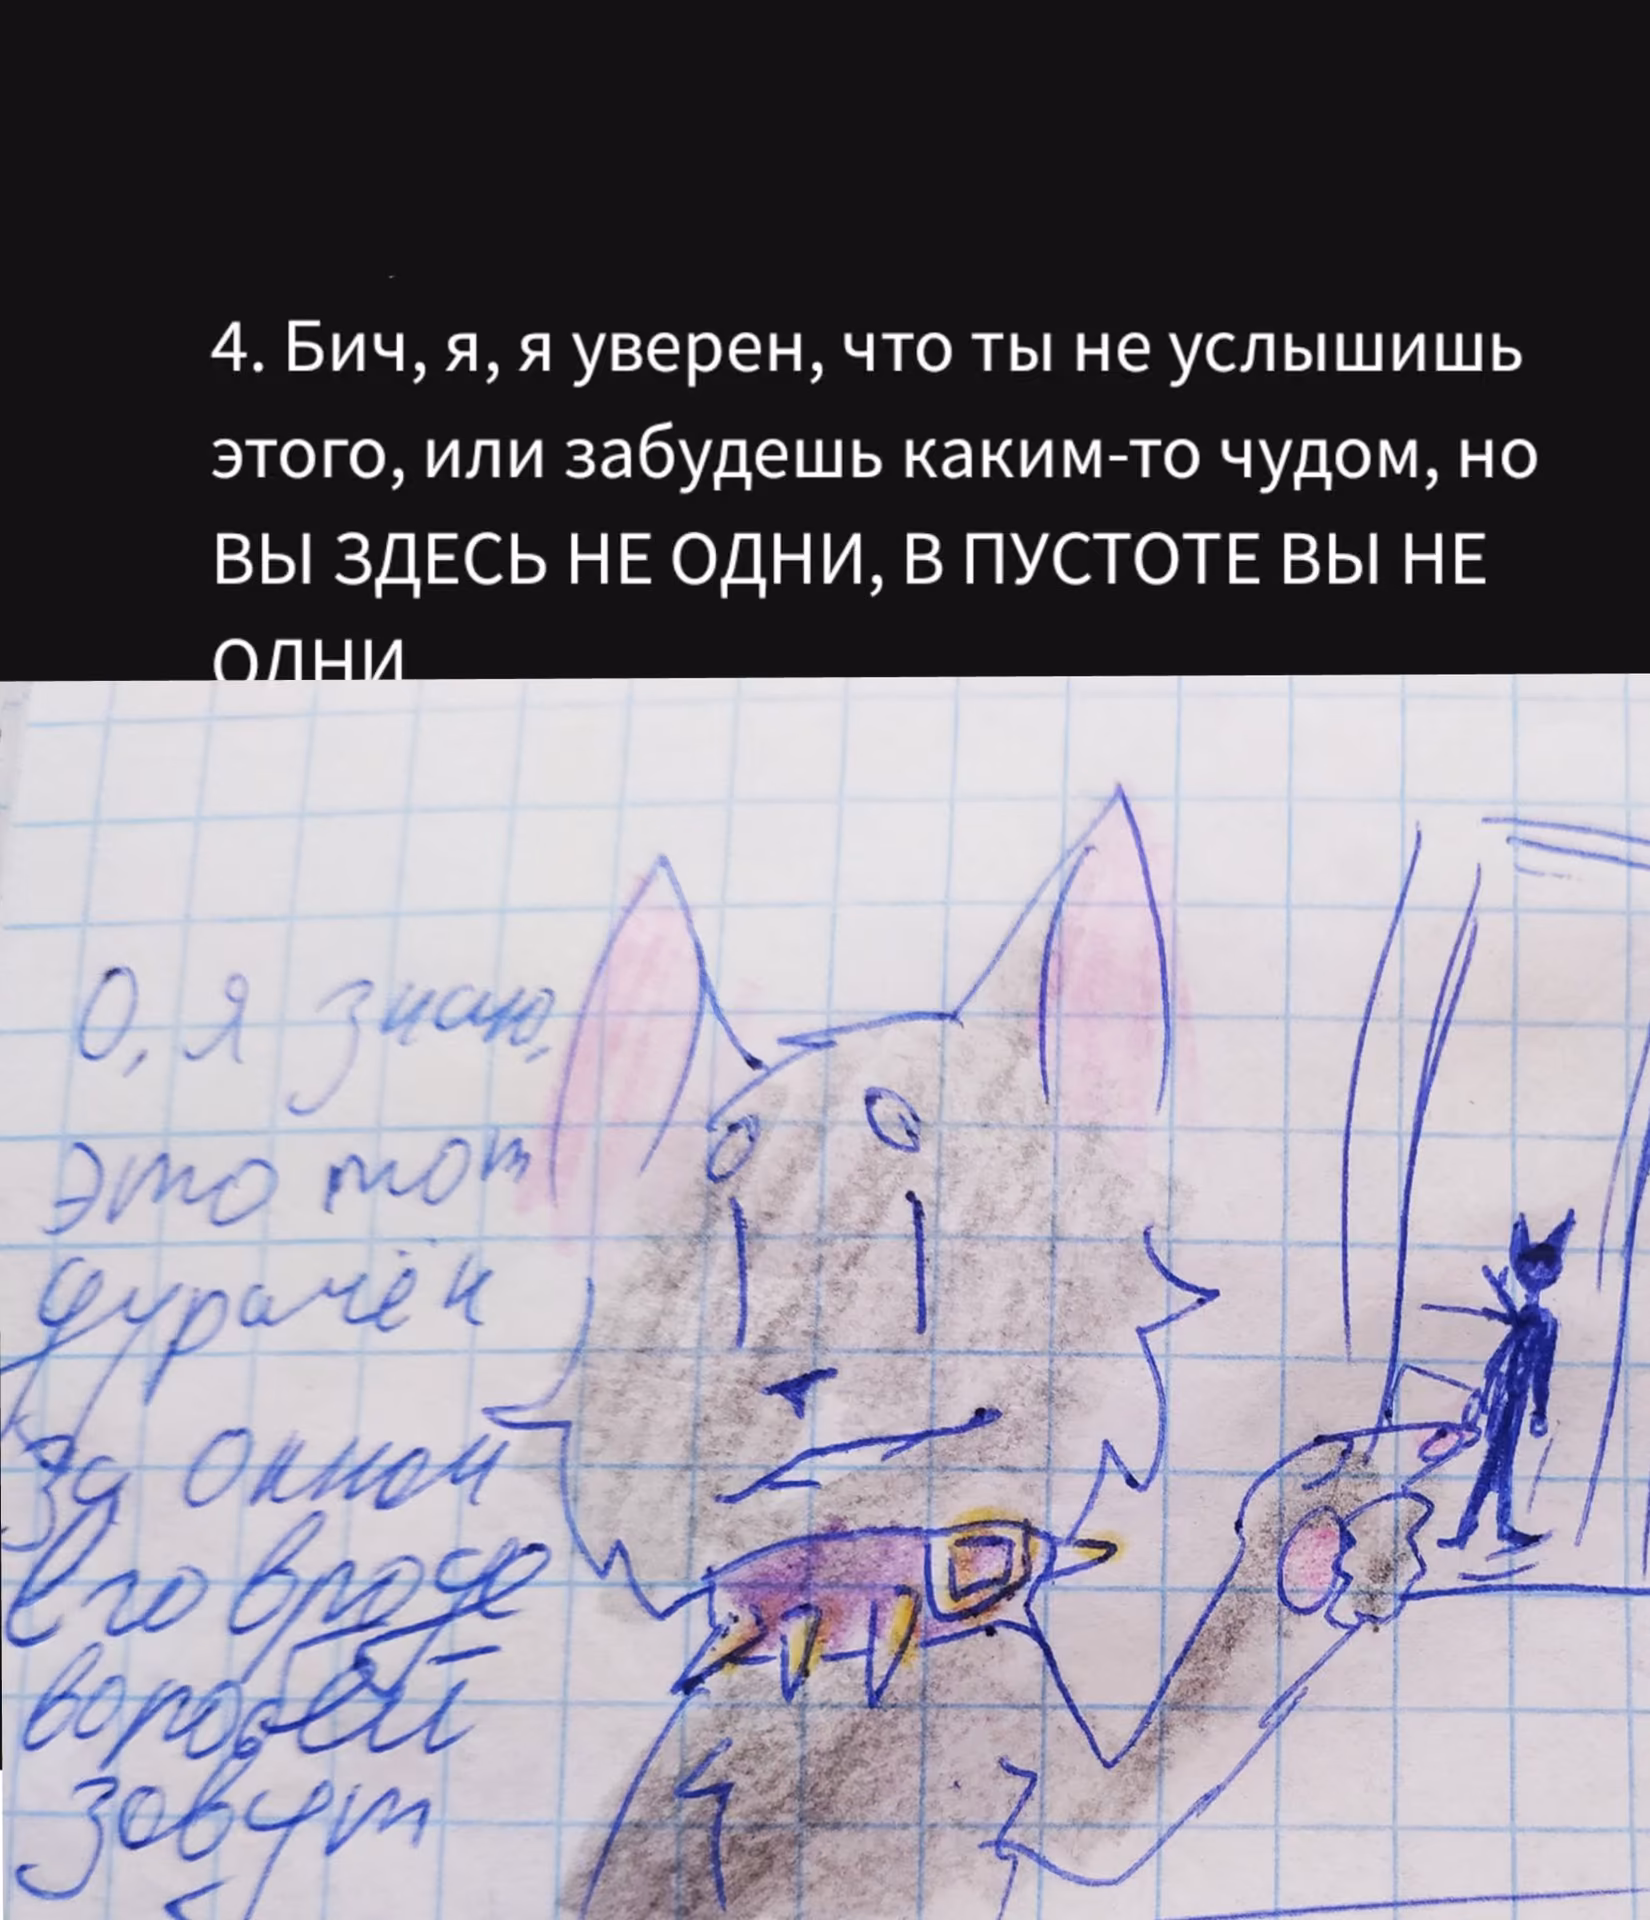 4. Бич, я, я уверен, что ты не услышишь
этого, или забудешь каким-то чудом, но
ВЫ ЗДЕСЬ НЕ ОДНИ, В ПУСТОТЕ ВЫ НЕ
ОДНИ
О, я знаю,
это тот
дурачёк
за окном
его вроде
воробей
зовут